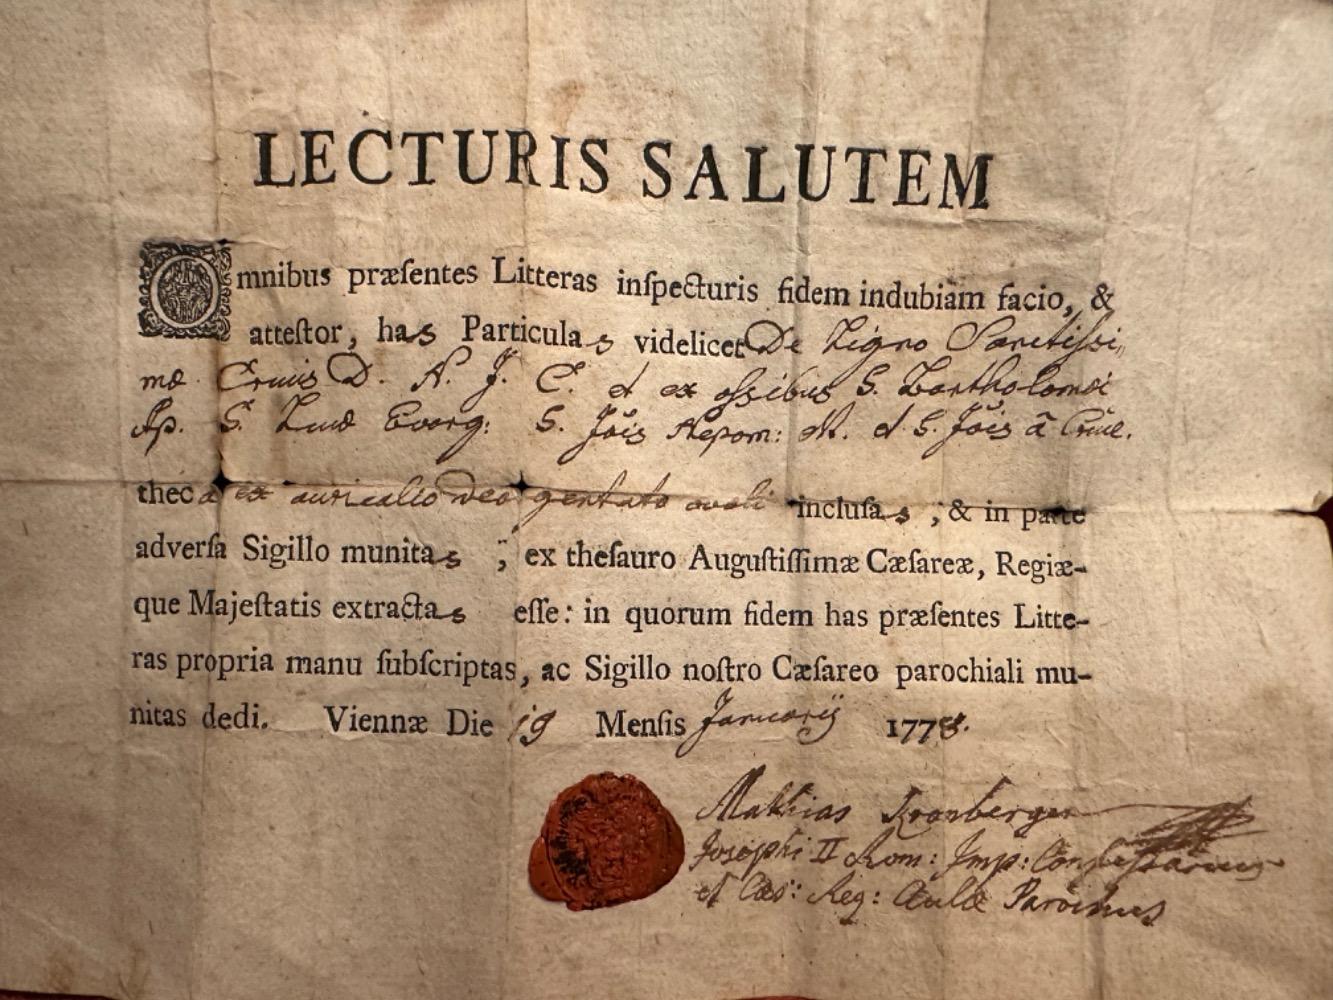 LECTURIS SALUTEM
Omnibus præſentes Litteras inſpecturis fidem indubiam facio, &
atteſtor, has Particulas videlicet De Ligno Sanctiſsi,,
mæ Crucis D. N. J. C. et ex oſsibus S. Bartholomæi
Ap. S. Lucæ Evang: S. Jõis Nepom: M. et S. Jõis ã Cruce.
thecâ ex auricalco deargentato ovali incluſas, & in parte
adverſa Sigillo munitas; ex theſauro Auguſtiſſimæ Cæſareæ, Regiæ-
que Majeſtatis extractas eſſe: in quorum fidem has præſentes Litte-
ras propria manu ſubſcriptas, ac Sigillo noſtro Cæſareo parochiali mu-
nitas dedi. Viennæ Die 19 Menſis Januarÿ 1778.
Mathias Kronberger
Josephi II Rom: Imp: Confeſsarius
et Cæs: Reg: Aulæ Parochus